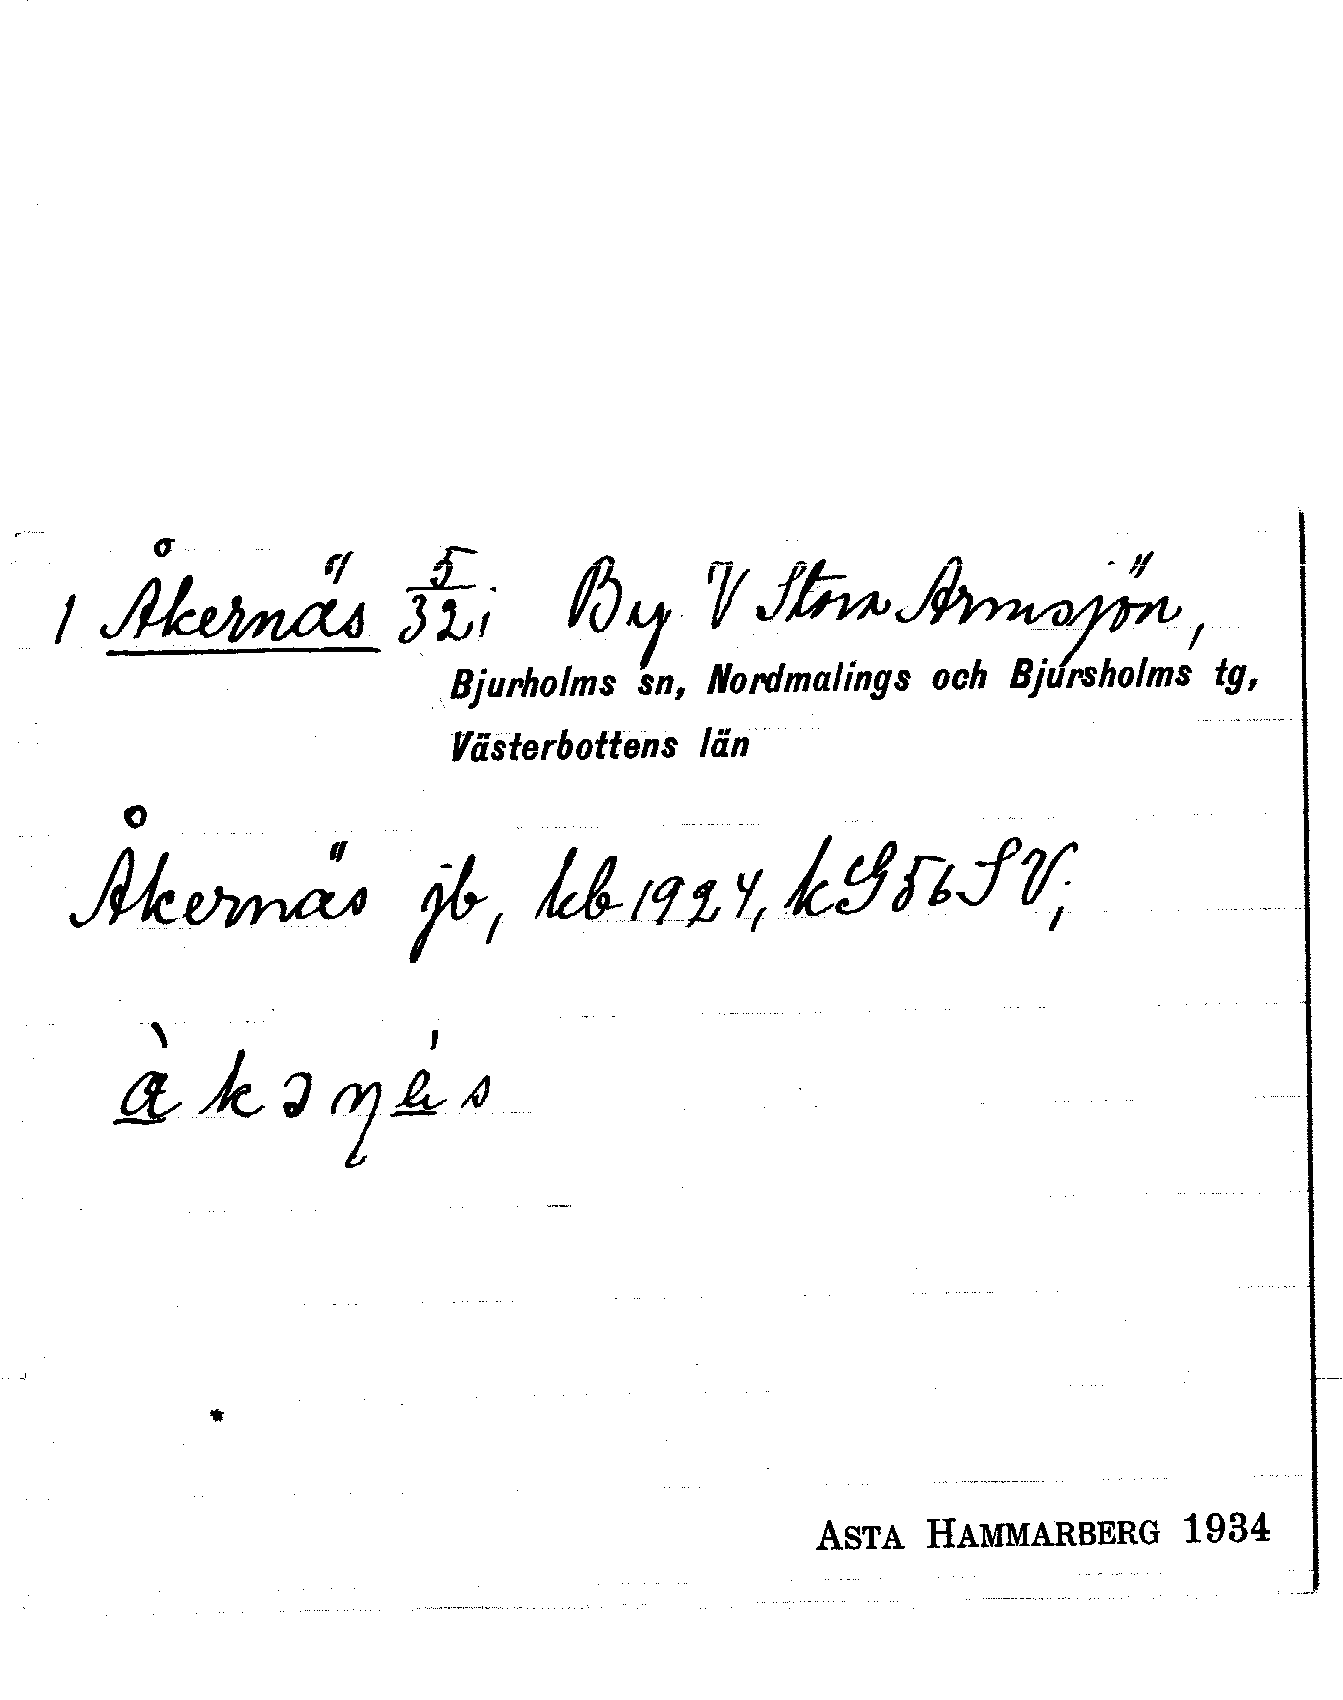 1 Åkernäs 5/32; By V Stora Armsjön,
Bjurholms sn, Nordmalings och Bjursholms tg,
Västerbottens län
Åkernäs jb, kb 1924, k G 56 S V;
Asta Hammarberg 1934